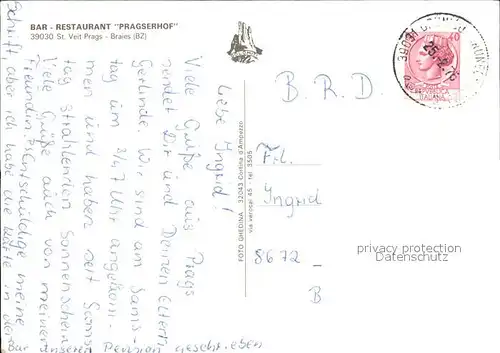 BAR - RESTAURANT "PRAGSERHOF"
39030 St. Veit Prags - Braies (BZ)
Liebe Ingrid!
Viele Grüße aus Prags
sendet Dir und Deinen Eltern
Gerlinde. Wir sind am Sams-
tag um 3/4 7 Uhr angekom-
men und haben seit Sams-
tag strahlenden Sonnenschein.
Viele Grüße auch von meiner
Freundin. Entschuldige meine
Schrift, aber ich habe die Karte in der
Bar unserer Pension geschrieben
FOTO GHEDINA - 32043 Cortina d'Ampezzo
via verocai 45 - tel. 3505
B. R. D.
Frl.
Ingrid
8672
B
39031
25
75
40
ITALIANA
privacy protection
Datenschutz